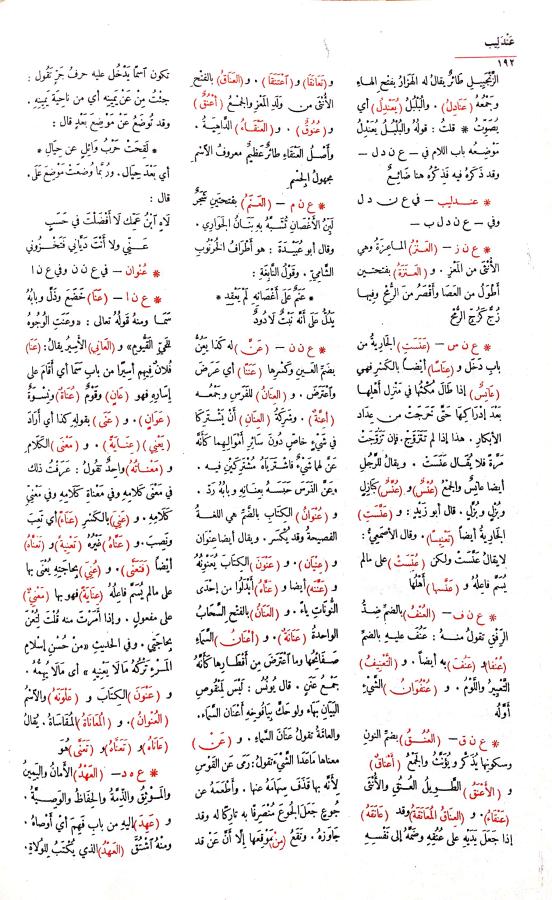 عَنْدَلِيب
١٩٢
الزَّنْجَبِيلِي طَائِرٌ يقالُ له الهَزَارُ بفتح الهاءِ
وجَمْعُهُ (عَنَادِلُ) . والبُلْبُلُ (يُعَنْدِلُ) أي
يُصَوِّتُ * قلتُ : قولهُ والبُلْبُلُ يُعَنْدِلُ
مَوْضِعُهُ باب اللام في - ع ن د ل -
وقد ذَكَرَهُ فيه فذِكْرُهُ هنا ضائعٌ
* عندليب - في ع ن د ل
وفي - ع ن د ل ب -
* ع ن ز - (العَنْزُ) الماعِزةُ وهي
الأُنْثَى من المَعْزِ . و (العَنَزَةُ) بفتحتين
أَطْوَلُ من العَصَا وأقْصَرُ من الرُّمْحِ وفيها
زُجٌّ كَزُجِّ الرُّمْحِ
* ع ن س - (عَنَسَتِ) الجاريةُ من
باب دَخَل و (عِنَاسًا) أيضا بالكَسْرِ فهي
(عَانِسٌ) إذا طالَ مُكْثُها في منزلِ أهْلِها
بعد إدْراكِها حتَّى خَرَجَتْ من عِدادِ
الأبكارِ . هذا إذا لم تَتَزَوَّجْ. فإن تَزَوَّجَتْ
مَرَّةً فلا يُقالُ عَنَسَتْ . ويقالُ للرَّجُلِ
أيضا عانِسٌ والجمعُ (عُنْسٌ) و (عُنَّسٌ) كبَازِلٍ
وبُزْلٍ وبُزَّلٍ . قال أبو زَيْدٍ : و (عَنَّسَتِ)
الجاريةُ أيضاً (تَعْنِيسًا) . وقال الأصْمَعِيُّ :
لا يقالُ عَنَّسَتْ ولكن (عُنِّسَتْ) على مالم
يُسَمَّ فاعِلُهُ و (عَنَّسَها) أَهْلُهَا
* ع ن ف - (العُنْفُ) بالضم ضِدُّ
الرِّفْقِ تقولُ منهُ : عَنُفَ عليهِ بالضم
(عُنْفًا) و (عَنُفَ) به أيضاً . و (التَّعْنِيفُ)
التَّعْيِيرُ واللَّوْمُ . و (عُنْفُوَانُ) الشَّيْءِ
أَوَّلُهُ
* ع ن ق - (العُنُقُ) بضم النونِ
وسكونها يُذَكَّرُ ويُؤَنَّثُ والجمعُ (أَعْنَاقٌ)
و (الأَعْنَقُ) الطَّوِيلُ العُنُقِ والأُنْثَى
(عَنْقَاءُ) . و (العِنَاقُ المُعَانَقَةُ) وقد (عَانَقَهُ)
إذا جَعَلَ يَدَيْهِ على عُنُقِهِ وضَمَّهُ إلى نَفْسِهِ
و (تَعَانَقَا) و (اعْتَنَقَا) . و (العَنَاقُ) بالفتح
الأُنْثَى من وَلَدِ المَعْزِ والجمعُ (أَعْنُقٌ)
و (عُنُوقٌ) . و (العَنْقَاءُ) الداهِيةُ .
وأَصْلُ العَنْقَاءِ طائرٌ عَظِيمٌ معروفُ الاسْمِ
مجهولُ الجِسْمِ
* ع ن م - (العَنَمُ) بفتحتين شَجَرٌ
لَيِّنُ الأَغْصَانِ تُشَبَّهُ به بَنَانُ الجَوَارِي .
وقال أبو عُبَيْدَةَ : هو أَطْرافُ الخَرُّوبِ
الشَّامِيّ . وقولُ النَّابِغَةِ :
* عَنَمٌ على أَغْصَانِهِ لم يَعْقِدِ *
يدُلُّ على أَنَّهُ نَبْتٌ لا دُودٌ
* ع ن ن - (عَنَّ) له كذا يَعُنُّ
بضمِّ العَينِ وكَسْرِها (عَنَنًا) أي عَرَضَ
وآعْتَرَضَ . و (العِنَانُ) للفَرَسِ وجمعُه
(أَعِنَّةٌ) . وشَرِكَةُ (العِنَانِ) أنْ يَشْتَرِكا
في شَيْءٍ خاصٍّ دُونَ سائرِ أموالِهِما كأنَّهُ
عَنَّ لهما شَيْءٌ فاشْتَرَياهُ مُشْتَرِكَيْنِ فيه .
وعَنَّ الفَرَسَ حَبَسَهُ بعِنانِهِ وبابُهُ رَدَّ .
و (عُنْوَانُ) الكتابِ بالضمِّ هي اللغةُ
الفَصِيحةُ وقد يُكْسَرُ . ويقالُ أيضا عِنوانٌ
و (عِنْيَانٌ) . و (عَنْوَنَ) الكتابَ يُعَنْوِنُهُ
و (عَنَّنَهُ) أيضا و (عَنَّاهُ) أَبْدَلُوا من إِحْدَى
النُّوناتِ ياءً . و (العَنَانُ) بالفتح السَّحَابُ
الواحدةُ (عَنَانَةٌ) . و (أَعْنَانُ) السَّمَاءِ
صَفَائِحُها وما اعْتَرَضَ مِن أقْطارِها كأنَّهُ
جَمْعُ عَنَنٍ . قال يُونُسُ : ليس لمَنْقُوصِ
البَيَانِ بَهَاءٌ ولو حَكَّ بِيَافُوخِهِ أعْنَانَ السَّمَاءِ.
والعَامَّةُ تقولُ عَنَانَ السَّمَاءِ . و (عَنْ)
معناها ماعَدَا الشَّيْءَ تقولُ: رَمَى عن القَوْسِ
لأنَّه بها قَذَفَ سِهَامَهُ عنها . وأطْعَمَهُ عن
جُوعٍ جَعَلَ الجُوعَ مُنْصَرِفًا به تارِكا له وقد
جاوَزَهُ . وتَقَعُ (مِنْ) مَوْقِعَها إلّا أنَّ عَنْ قد
تكون اسمًا يَدْخُلُ عليه حرفُ جَرٍّ تقولُ :
جئتُ مِنْ عَنْ يَمِينِهِ أي من ناحِيَةِ يَمِينِهِ .
وقد تُوضَعُ عَنْ مَوْضِعَ بَعْدٍ قال :
* لَقِحَتْ حَرْبُ وائلٍ عن حِيَالِ *
أي بَعْدَ حِيَالٍ . ورُبَّمَا وُضِعَتْ موضعَ عَلَى .
قال :
لاهِ ابْنُ عَمِّكَ لا أَفْضَلْتَ في حَسَبٍ
عَنِّي ولا أَنْتَ دَيَّانِي فَتَخْزُونِي
* عُنْوَان - في ع ن ن وفي ع ن ا
* ع ن ا - (عَنَا) خَضَعَ وذَلَّ وبابُهُ
سَمَا ومنهُ قولُهُ تعالى : «وعَنَتِ الوُجُوهُ
للحَيِّ القَيُّومِ» و (العَانِي) الأَسِيرُ يقالُ: (عَنَا)
فُلانٌ فيهم أسِيرًا من باب سَمَا أي أقَامَ على
إسَارِهِ فهو (عَانٍ) وقَوْمٌ (عُنَاةٌ) ونِسْوَةٌ
(عَوَانٍ) . و (عَنَى) بقَوْلِهِ كذا أي أَرَادَ
(يَعْنِي) (عِنَايَةً) . و (مَعْنَى) الكَلَامِ
و (مَعْنَاتُهُ) واحِدٌ تقولُ : عَرَفْتُ ذلك
في مَعْنَى كلامِهِ وفي مَعْنَاةِ كلامِهِ وفي مَعْنِيِّ
كلامِهِ . و (عَنِيَ) بالكَسْرِ (عَنَاءً) أي تَعِبَ
ونَصِبَ . و (عَنَّاهُ) غَيْرُهُ (تَعْنِيَةً) و (تَعَنَّاهُ)
أيضاً (فَتَعَنَّى) . و (عُنِيَ) بحاجَتِهِ يُعْنَى بها
على مالم يُسَمَّ فاعِلُهُ (عِنَايَةً) فهو بها (مَعْنِيٌّ)
على مفعولٍ . وإذا أَمَرْتَ منه قُلْتَ لِتُعْنَ
بحاجَتِي . وفي الحديثِ «من حُسْنِ إسلامِ
المَرْءِ تَرْكُهُ مَا لَا يَعْنِيهِ » أى مَا لَا يُهِمُّهُ .
و (عَنْوَنَ) الكِتَابَ و (عَلْوَنَهُ) والاسْمُ
(العُنْوَانُ) . و (المُعَانَاةُ) المُقَاسَاةُ. يقالُ
(عَانَاهُ) و (تَعَنَّاهُ) و (تَعَنَّى) هُوَ
* ع ه د - (العَهْدُ) الأَمَانُ واليَمِينُ
والمَوْثِقُ والذِّمَّةُ والحِفَاظُ والوَصِيَّةُ .
و (عَهِدَ) إليهِ من باب فَهِمَ أيْ أَوْصَاهُ .
ومنْهُ اشْتُقَّ (العَهْدُ) الذي يُكْتَبُ للوُلاةِ.